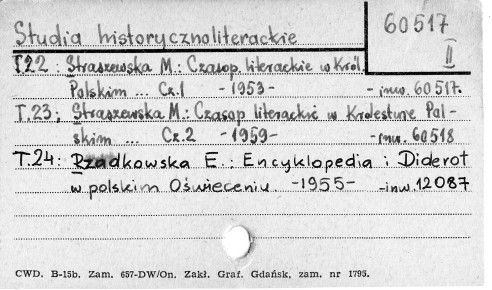 Studia historycznoliterackie
60517
II
T.22: Straszewska M.: Czasop. literackie w Król.
Polskim ... Cz.1 - 1953 - - inw. 60517.
T.23; Straszewska M.: Czasop literackie w Królestwie Pol-
skim ... Cz.2 - 1959 - - inw. 60518
T.24: Rzadkowska E.: Encyklopedia i Diderot
w polskim Oświeceniu -1955- -inw 12087
CWD. B-15b. Zam. 657-DW/On. Zakł. Graf. Gdańsk, zam. nr 1795.